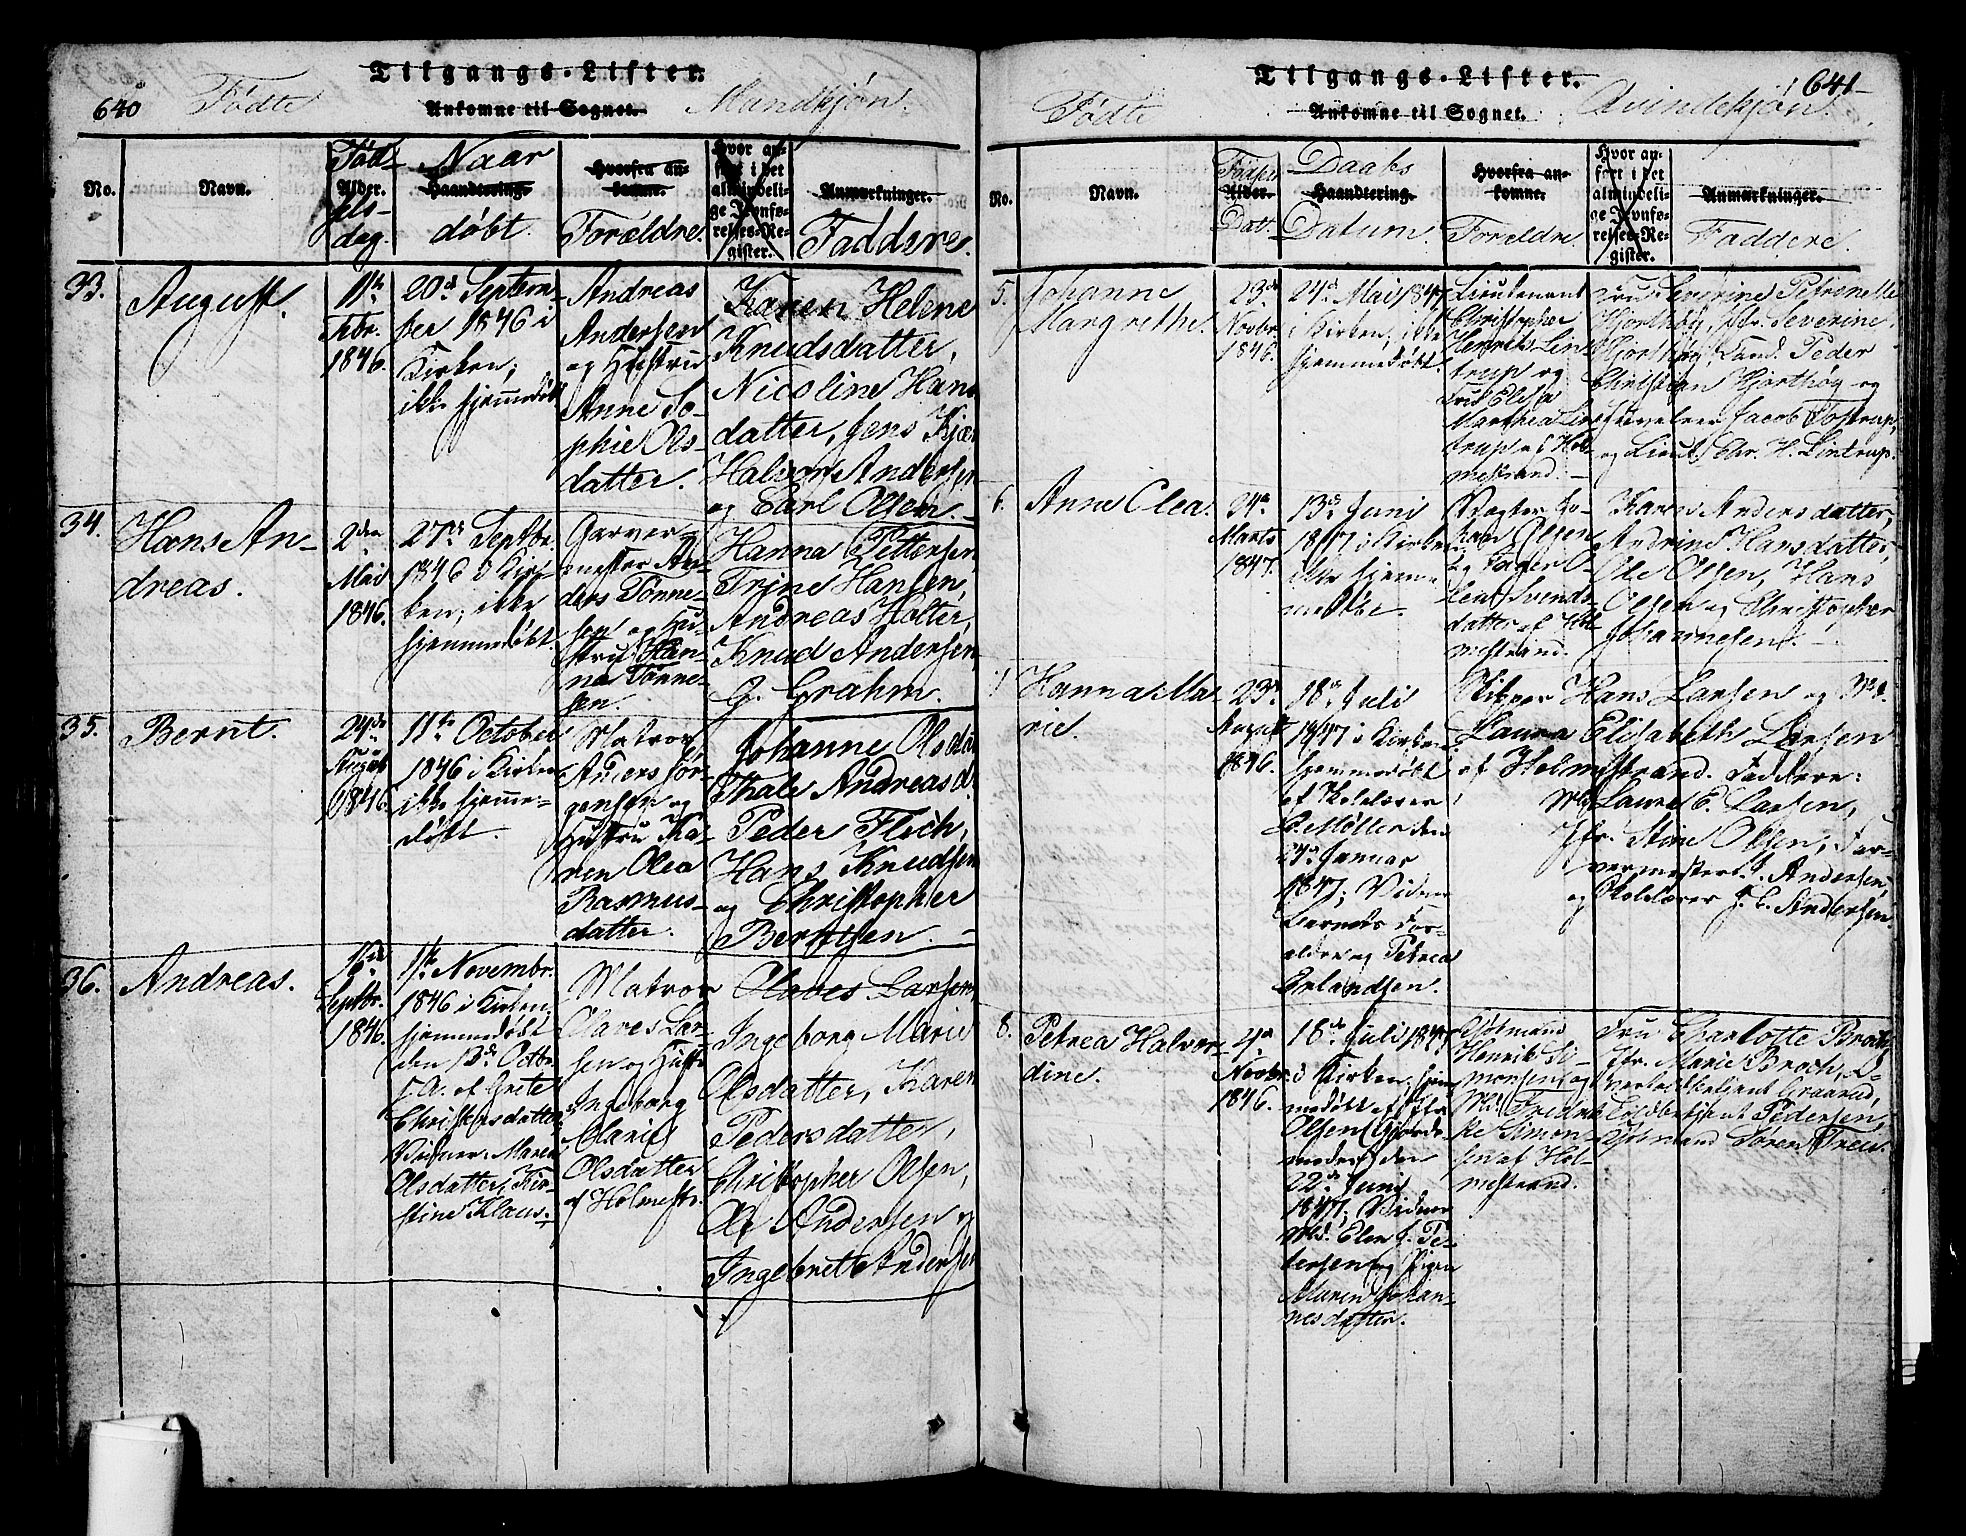 640
Tilgangs-Lister.
Fødte
Ankomne til Sognet.
Mandkjøn.
No.
Navn.
Fød-
Alder.
sels-
dag.
Naar
Haandtering.
døbt.
Hvorfra an-
komne.
Forældre.
Hvor an-
ført i det
almindeli-
ge Jevnfø-
relses-Re-
gister.
Anmærkninger.
Faddere.
33.
August.
11te
Febr.
1846.
20de Septem-
ber 1846 i
Kirken,
ikke hjemmedøbt
Andreas
Andersen
og Hustru
Anne So-
phie Ols-
datter.
Karen Helene
Knudsdatter,
Nicoline Hans
datter, Jens Kjær
Halvor Andersen
og Carl Olsen.
34.
Hans An-
dreas.
2den
Mai
1846.
27de Septbr.
1846 i Kir-
ken, ikke
hjemmedøbt.
Garver-
mester An-
ders Tønne-
sen og Hu-
stru Han-
na Tønne-
sen.
Hanna Pettersen
Trine Hansen,
Andreas Holter,
Knud Andersen
G. Grahm.
35.
Bernt.
24de
August
1846.
11te October
1846 i Kirken
ikke hjemme-
døbt.
Matros
Anders Jør-
gensen og
Hustru Ka-
ren Olea
Rasmus-
datter.
Johanne Olsdat
Thale Andreasd.
Peder Flich,
Hans Knudsen
og Christopher
Berntsen.
36.
Andreas.
Septbr.
1846.
1te Novembr.
1846 i Kirken,
hjemmedøbt
den 13de Octbr.
s. A. af Grete
Christensdatter
Vidner: Maren
Olsdatter, Kir-
stine Klaus.
Matros
Olaves Lar-
sen og Hustr
Ingeborg
Marie
Olsdatter
af Holmestr.
Olaves Larsen
Ingeborg Marie
Olsdatter, Karen
Pedersdatter,
Christopher Olsen,
Andersen og
Ingebret Andersen
641
Tilgangs-Lister.
Fødte
Ankomne til Sognet.
Qvindekjøn.
No.
Navn.
Fødsels
Alder.
Dat.
Daabs
Haandtering.
Datum.
Hvorfra an-
komne.
Forældre.
Hvor an-
ført i det
almindeli-
ge Jevnfø-
relses-Re-
gister.
Anmærkninger.
Faddere.
5.
Johanne
Margrethe.
23de
Novbr
1846.
24de Mai 1847
i Kirken, ikke
hjemmedøbt.
Lieutenant
Christopher
Henrik Lin-
trup og
Fru Elisa
Marthea Lin-
trup af Hol-
mestrand.
Fru Severine Petronelle
Hjorthøy, Jfr. Severine
Hjorthøy, Cand. Peder
Christian Hjorthøy og
Juveleer Jacob Tostrup,
og Lieut. Chr. H. Lintrup.
6.
Anne Olea.
24de
Marts
1847.
13de Juni
1847 i Kirken
ikke hjemme
døbt.
Jo-
han Olsen
og
Lene Svends-
datter af Hol-
mestrand.
Karen Andersdatter,
Andrine Hansdatter,
Ole Olsen, Hans
Olsen og Christopher
Johannesen.
7
Hanna Ma-
rie.
23de
August
1846.
18de Juli
1847 i Kirken
hjemmedøbt
af Skolelærer
Møller den
24de Januar
1847; Vidner
Barnets For-
ældre og Petrea
Erlandsen.
Skipper Hans Larsen og
Laura Elisabeth Larsen
af Holmestrand. Faddere:
Laura E. Larsen,
Jfr. Stine Olsen, Far-
vermester J. Andersen,
og Skolelærer J. C. Andersen.
8.
Petrea Halvor-
dine.
4de
Novbr
1846.
18de Juli 1847
i Kirken, hjem
medøbt af Jfr.
Olsen (Gjorde-
moder) den
22de Juni
1847, Vidner
Md. Elen J. Pe-
tersen og Pigen
Maren Johan-
nesdatter.
Kjøbmand
Henrik Si-
monsen og
Md. Fredrik-
ke Simon-
sen af Hol-
mestrand.
Fru Charlotte Broch,
Jfr. Marie Broch, O-
vertoldbetjent Graarud,
Toldbetjent Pedersen,
Kjøbmand Søren